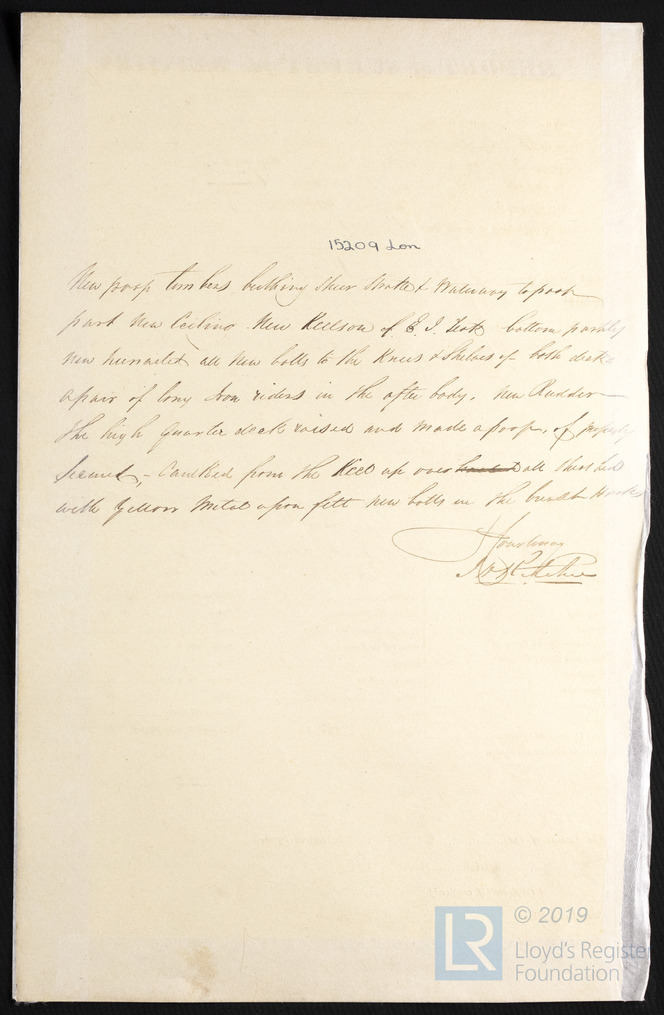 15209 Lon
New poop timbers buthing Sheer Strake & Waterway to poop
part New Ceiling. New Keelson of E. I. Teak bottom partly
new all New bolts to the Knees & Shelves of both decks
a pair of long Iron riders in the after body. New Rudder
the high quarter deck raised and made a poop, of properly
Secured, - Caulked from the Keel up over all sheathed
with Yellow Metal upon felt new bolts in the breast Hooks
LR © 2019
Lloyd's Register
Foundation